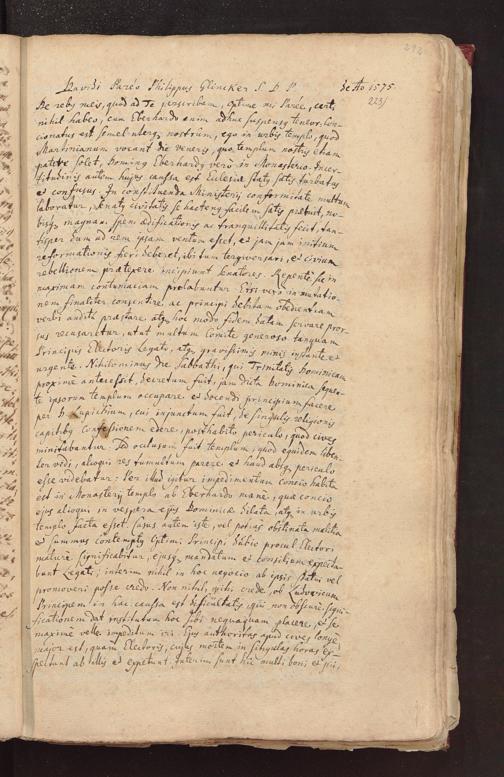 292
Davidi Paréo Philippus Glincker S. D. P. de Ao 1575.
De rebus meis, quod ad Te perscribem, optime mi Parée, certi 223/
nihil habeo, cum Eberhardo enim adhuc suspensus teneor. Con-
cionatus est semel uterq nostrûm, ego in urbis templo, quod
Martinianum vocant die veneris, quo templum nostris etiam
patere solet, Dominus Eberhardus verò in Monasterio. Incer-
titudinis autem hujus causa est Ecclesiæ status satis turbatus
et confusus. In constituenda Ministerii conformitate multum
laboratur, senatus civitatis se hactenus facilem satis præbuit, no-
bisq magnam spem ædificationis ac tranquillitatis fecit, tan-
tisper dum ad rem ipsam ventum esset, et jam jam initium
reformationis fieri deberet, ibi tum tergiversari, et civium
rebellionem prætexere incipiunt senatores. Repentè se in
maximam contumaciam prolabuntur. Etsi verò in mutatio-
nem finaliter consentire, ac principi debitam obedientiam
verbis audita præstare, atq hoc modo fidem datam servare pror-
sus recusaretur, utut multum Comite generoso tanquam
Principis Electoris Legato, atq gravissimis minis instante et
urgente. Nihilominus die Sabbathi, qui Trinitatis Dominicam
proximè antecessit, decretum fuit, jam dicta Dominica seque-
te ipsorum templum occupare, et docendi principium facere
per D. Lupichium, cui injunctum fuit, de singulis religionis
capitibus confessionem edere, posthabito periculo, quod cives
minitabantur. Sed occlusum fuit templum, quod equidem liben-
ter vidi, alioqui res tumultum parere et haud absq periculo
esse videbatur. Per illud igitur impedimentum concio habita
est in Monasterij templo ab Eberhardo manè, quæ concio
ejus alioqui in vesperam ejus Dominicæ dilata, atq in urbis
templo facta esset. Casus autem iste, vel potius obstinata malitia
et summus contemptus optimi Principi dubio procul Electori
maturè significabitur, ejusq mandatum et consilium expecta-
bunt Legati; interim nihil in hoc negocio ab ipsis statui vel
promoveri posse credo. Non nihil, mihi crede, ob Ludovicum
Principem in hac causa est difficultatis, qui non obscurè signi-
ficationem dat institutum hoc sibi nequaquam placere, et se
maxime velle impeditum iri. Ejus authoritas apud cives longè
major est, quam Electoris, cujus mortem in singulas horas ex-
spectant ab illis et expetunt. Interim sunt hîc multi boni et pii,